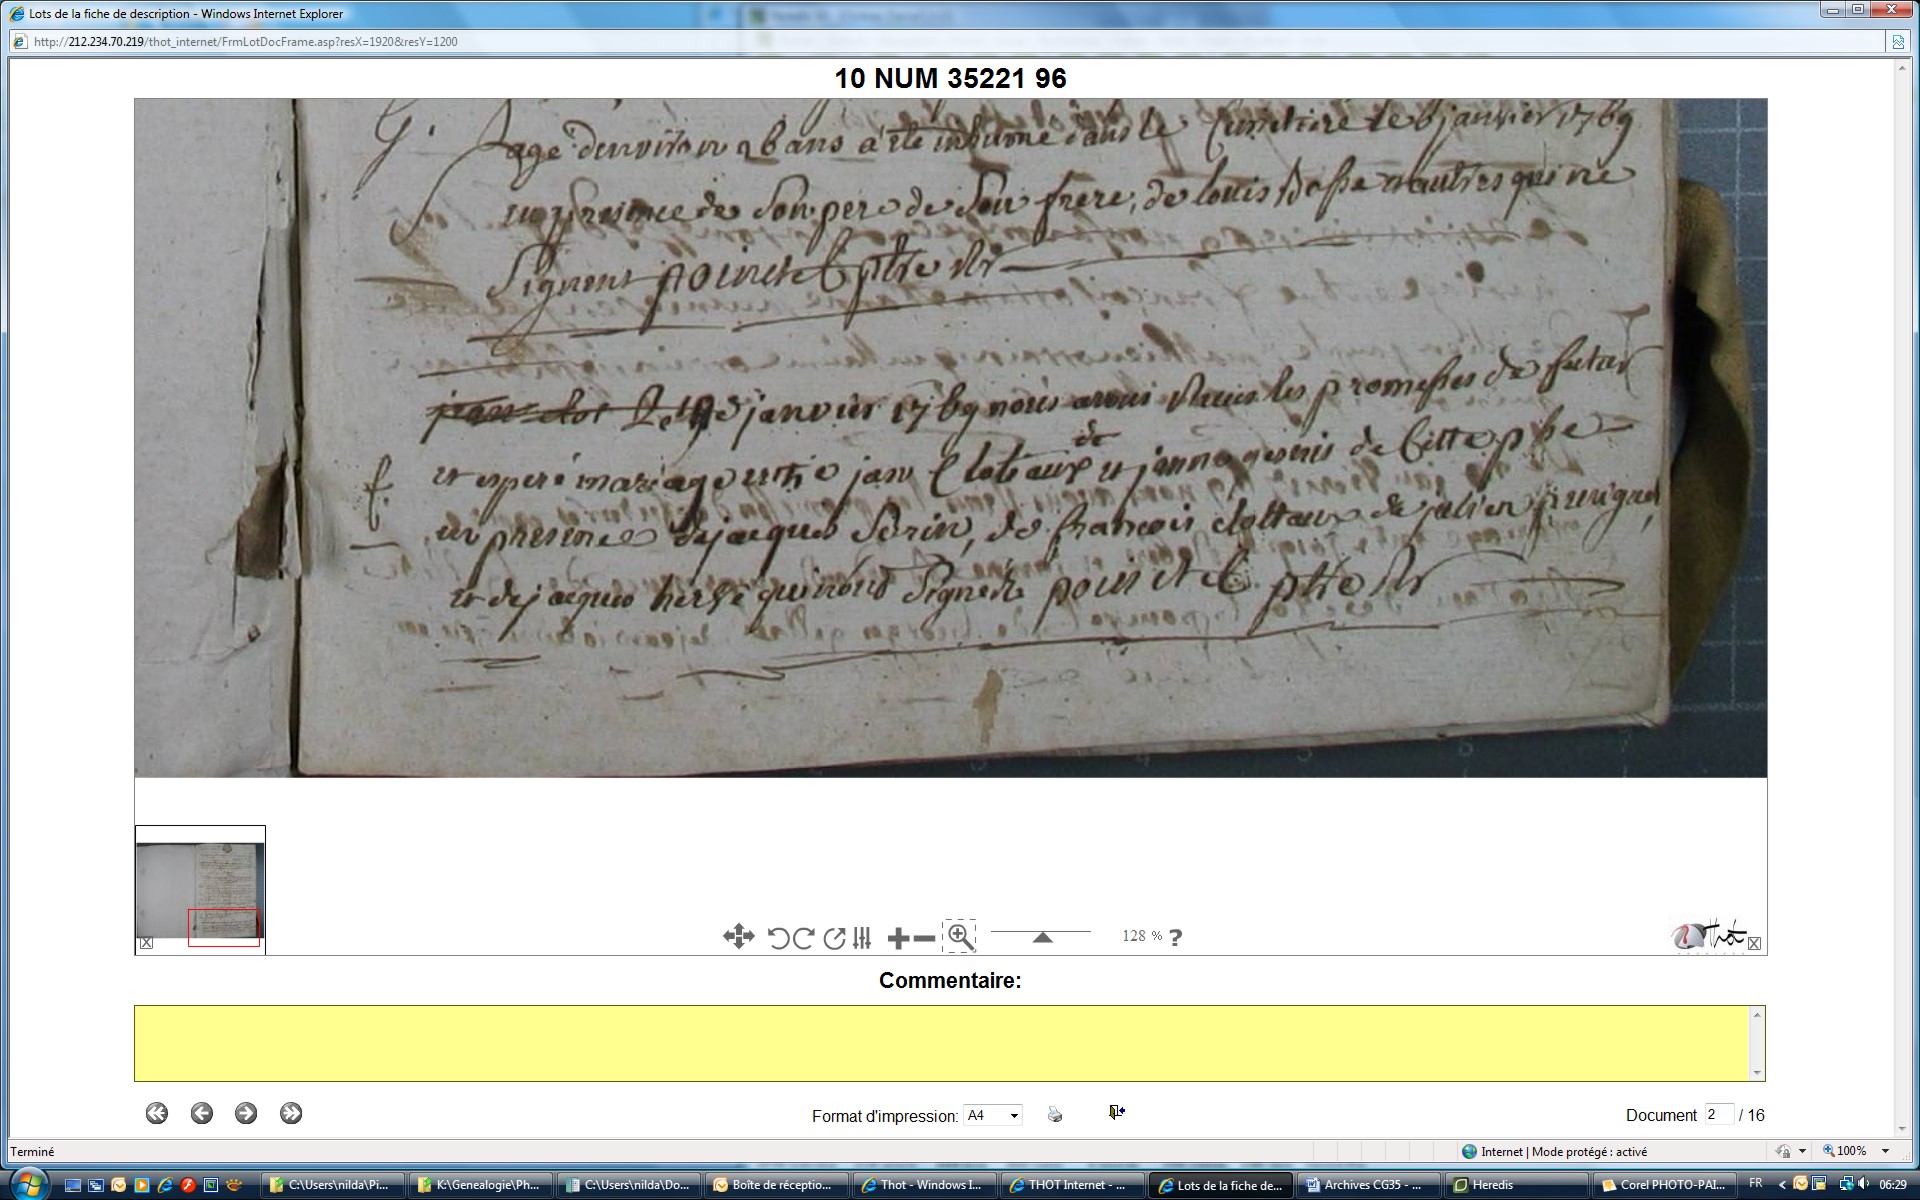 Lots de la fiche de description - Windows Internet Explorer
http://212.234.70.219/thot_internet/FrmLotDocFrame.asp?resX=1920&resY=1200
10 NUM 35221 96
G.
agé denviron 26 ans a été inhumé dans le Cimitiere le 6 janvier 1769
en presence de Son pere de Son frere, de louis & autres qui ne
Signent pointel ptre Rr
janvier 1769 nous avons les promesses de futur
f.
et esperé mariage entre jan Cloteaux et janne de Cette psse
en presence de jacques Serin, de francois clottaux de julien
et de jacques hervé qui nont Signé pointel ptre Rr
128 % ?
Thot
Commentaire:
Format d'impression: A4
Document 2 / 16
Terminé
Internet | Mode protégé : activé
100%
C:\Users\nilda\Pi...
K:\Genealogie\Ph...
C:\Users\nilda\Do...
Boîte de réceptio...
Thot - Windows I...
THOT Internet - ...
Lots de la fiche de...
Archives CG35 - ...
Heredis
Corel PHOTO-PAI...
FR
06:29